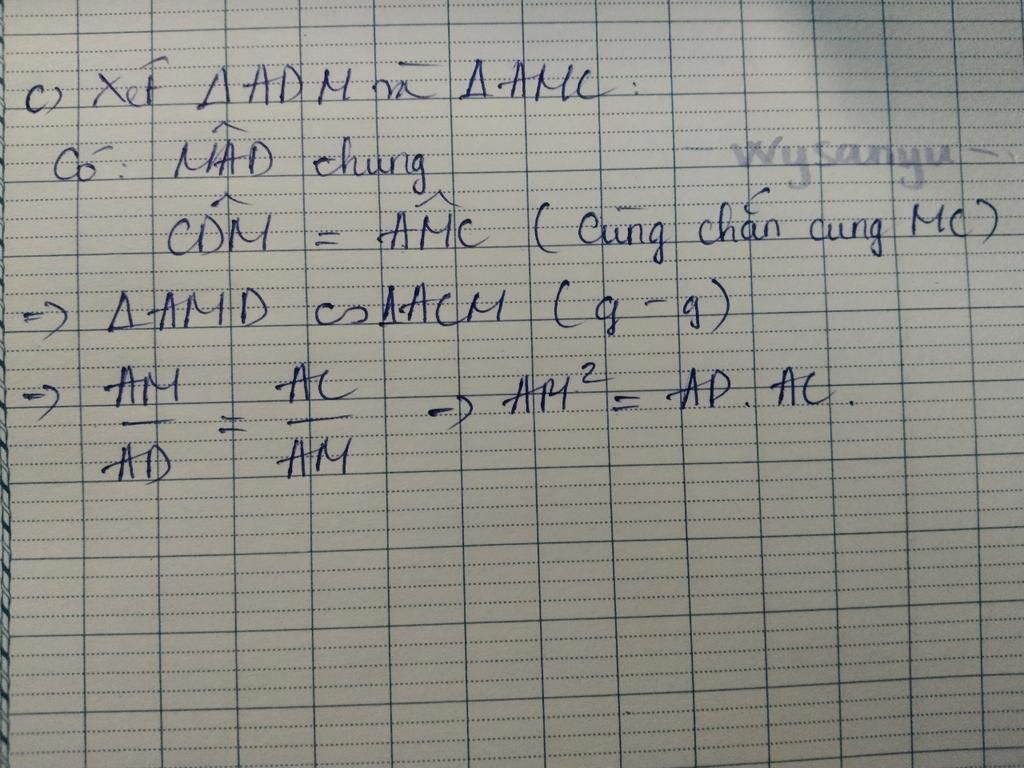 c) Xét ΔADM và ΔAMC:
Có: M̂AD chung
- Wysanyu -
CD̂M = AM̂C (Cùng chắn cung MC)
=> ΔAMD ∽ ΔACM (g-g)
=> AM/AD = AC/AM -> AM² = AD. AC.